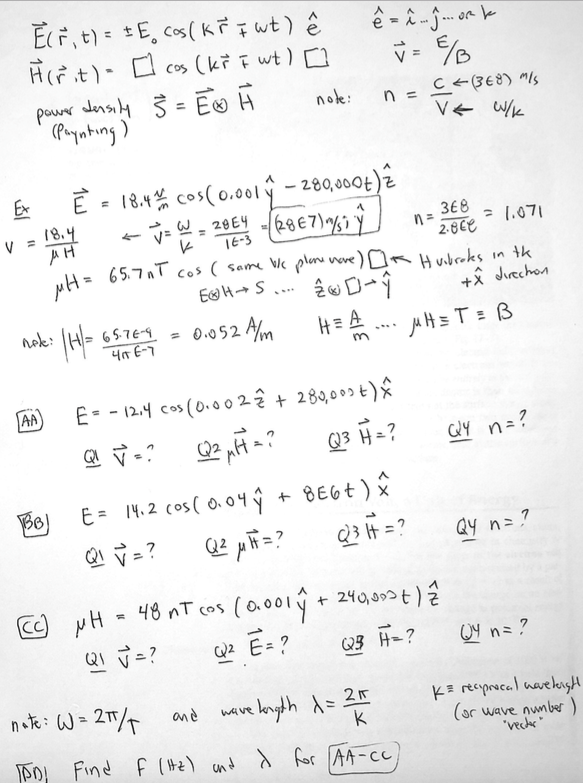 E⃗(r⃗,t) = ±E₀ cos(kr⃗ ∓ wt) ê ê = î...ĵ...or k
H⃗(r⃗,t) = □ cos(kr⃗ ∓ wt) □ v⃗ = E/B
power density S⃗ = E⃗⊗H⃗ note: n = C/V ← (3E8) m/s
(Poynting) ← w/k
Ex E⃗ = 18.4 V/m cos(0.001ŷ - 280,000t)ẑ
V = 18.4/μH ← v⃗ = w/k = 28E4/1E-3 = (28E7) m/s, ŷ n = 3E8/2.8E8 = 1.071
μH = 65.7nT cos (same b/c plane wave) □ ← H vibrates in the
E⊗H→S .... ẑ⊗□→ŷ +x̂ direction
note: |H| = 65.7E-9/4πE-7 = 0.052 A/m H ≡ A/m .... μH ≡ T ≡ B
AA E = -12.4 cos(0.002ẑ + 280,000t)x̂
Q1 v⃗ = ? Q2 μH⃗ = ? Q3 H⃗ = ? Q4 n = ?
BB E = 14.2 cos(0.04ŷ + 8E6t)x̂
Q1 v⃗ = ? Q2 μH⃗ = ? Q3 H⃗ = ? Q4 n = ?
CC μH = 48 nT cos(0.001ŷ + 240,000t)ẑ
Q1 v⃗ = ? Q2 E⃗ = ? Q3 H⃗ = ? Q4 n = ?
note: ω = 2π/T and wavelength λ = 2π/K K ≡ reciprocal wavelength
(or wave number)
"vector"
DD Find f (Hz) and λ for AA-CC